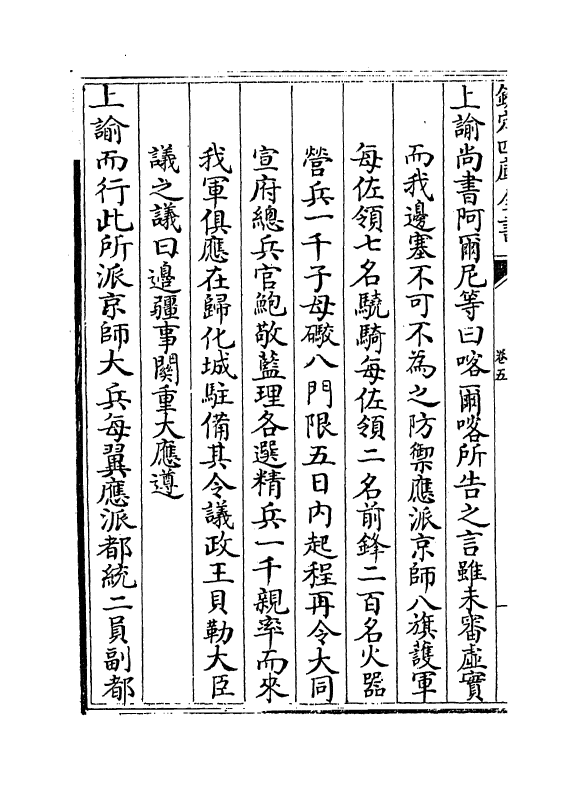 欽定四庫全書
卷五
上諭尚書阿爾尼等曰喀爾喀所告之言雖未審虛實
而我邊塞不可不為之防禦應派京師八旗護軍
每佐領七名驍騎每佐領二名前鋒二百名火器
營兵一千子母礮八門限五日內起程再令大同
宣府總兵官鮑敬藍理各選精兵一千親率而來
我軍俱應在歸化城駐備其令議政王貝勒大臣
議之議曰邊疆事關重大應遵
上諭而行此所派京師大兵每翼應派都統二員副都